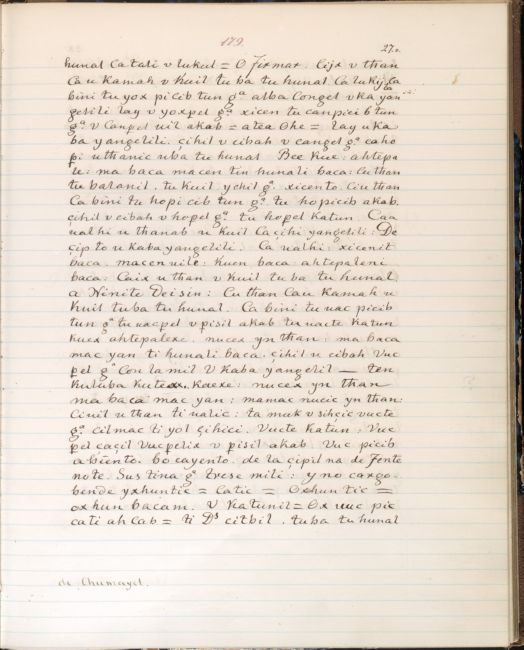 179
27.v.
hunal Ca tali v lukul = O Firmar. Cijx v than
Ca u Kamah v Kuil tu ba tu hunal Ca lukij Ca
bini tu yox picib tun gᵃ alba Congel v ka yan
gelili lay v yoxpel gᵃ xicen tu canpicib tun
gᵃ v Canpel uil akab = atea Ohe = lay u Ka
ba yangelili. çihil v cibah v cangel gᵃ caho
pi uthanic uba tu hunal Bee Kue: ahtepa
le: ma baca macen tin hunali baca: Cu than
tu baľanil. tu Kuil ychil gᵃ. xicento. Ci u than
Ca bini tu hopi cib tun gᵃ tu hopicib akab.
cihil v cibah v hopel gᵃ tu hopel Katun Caa
ualhi u thanab u Kuil Ca çihi yangelili: De
çip to u Kaba yangelili. Ca ualhi: xicenit
baca. macenuile: Kuen baca ahtepaleni
baca: Caix u than v Kuil tu ba tu hunal
a Ninite Deisin: Cu than Cau Kamah u
Kuil tuba tu hunal. Ca bini tu uac picib
tun gᵃ tu uacpel v pisil akab tu uacte Katun
Kuex ahtepalexe. nucex yn than: ma baca
mac yan ti hunali baca çihil u cibah Vuc
pel gᵃ Con la mil V Kaba yangelil — ten
Kuluba Kuteex. Kaexe: nucex yn than
ma baca mac yan: mamac nucic yn than:
Ciuil u than ti ualic: ta muk v sihçic vucte
gᵃ cilmac ti yol çihici. Vucte Katun. Vuc
pel caçil Vucpelix v pisil akab. Vuc picib
abiento. bo cayento. de la çipil na de fente
note. Sustina gᵃ trese mili: y no cargo.
bende yxhuntic = Catic = Oxhuntic =
oxhun bacam. V Katunil = Ox uuc pic
cati ah Cab = ti Dˢ citbil. tuba tu hunal
de Chumayel.